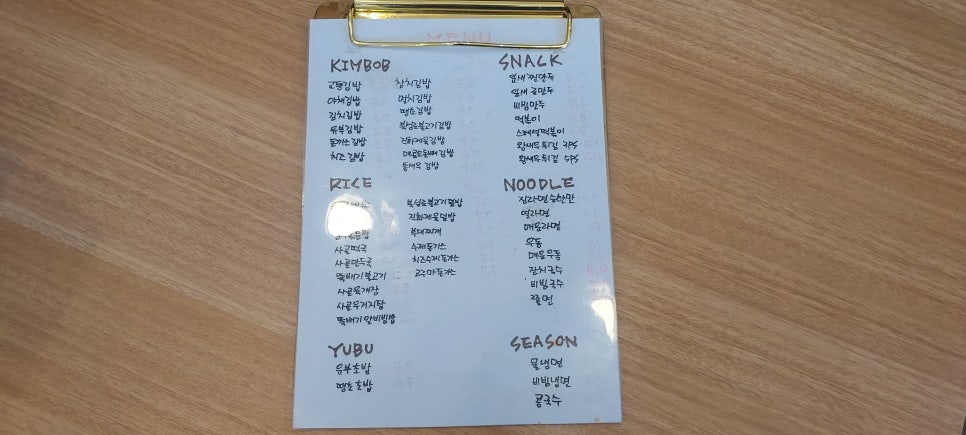 MENU
KIMBOB
교동김밥
야채김밥
김치김밥
유부김밥
돈까스김밥
치즈김밥
참치김밥
멸치김밥
땡초김밥
북성로불고기김밥
직화제육김밥
통새우김밥
SNACK
잎새찐만두
잎새군만두
비빔만두
떡볶이
스페셜떡볶이
왕새우튀김 3PS
왕새우튀김 5PS
RICE
사골떡국
사골만두국
뚝배기불고기
사골육개장
사골우거지탕
뚝배기알비빔밥
북성로불고기덮밥
직화제육덮밥
부대찌개
수제돈가스
치즈수제돈가스
고구마돈가스
NOODLE
진라면순한맛
열라면
매움라면
우동
매움우동
잔치국수
비빔국수
쫄면
YUBU
유부초밥
땡초초밥
SEASON
물냉면
비빔냉면
콩국수